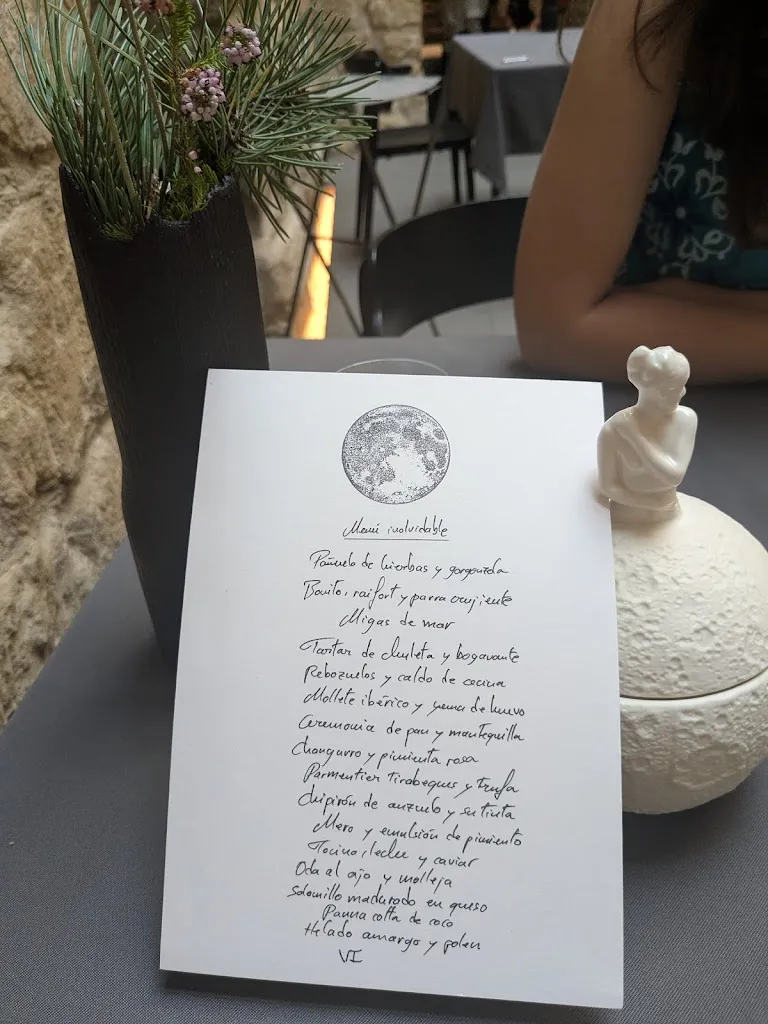 Menú inolvidable
Pañuelo de hierbas y gorgonzola
Bonito, raifort y parra crujiente
Migas de mar
Tartar de chuleta y bogavante
Rebozuelos y caldo de cecina
Mollete ibérico y yema de huevo
Ceremonia de pan y mantequilla
Changurro y pimienta rosa
Parmentier tirabeques y trufa
Chipirón de anzuelo y su tinta
Mero y emulsión de pimiento
Tocino, leche y caviar
Oda al ajo y molleja
Solomillo madurado en queso
Panna cotta de coco
Helado amargo y polen
VI